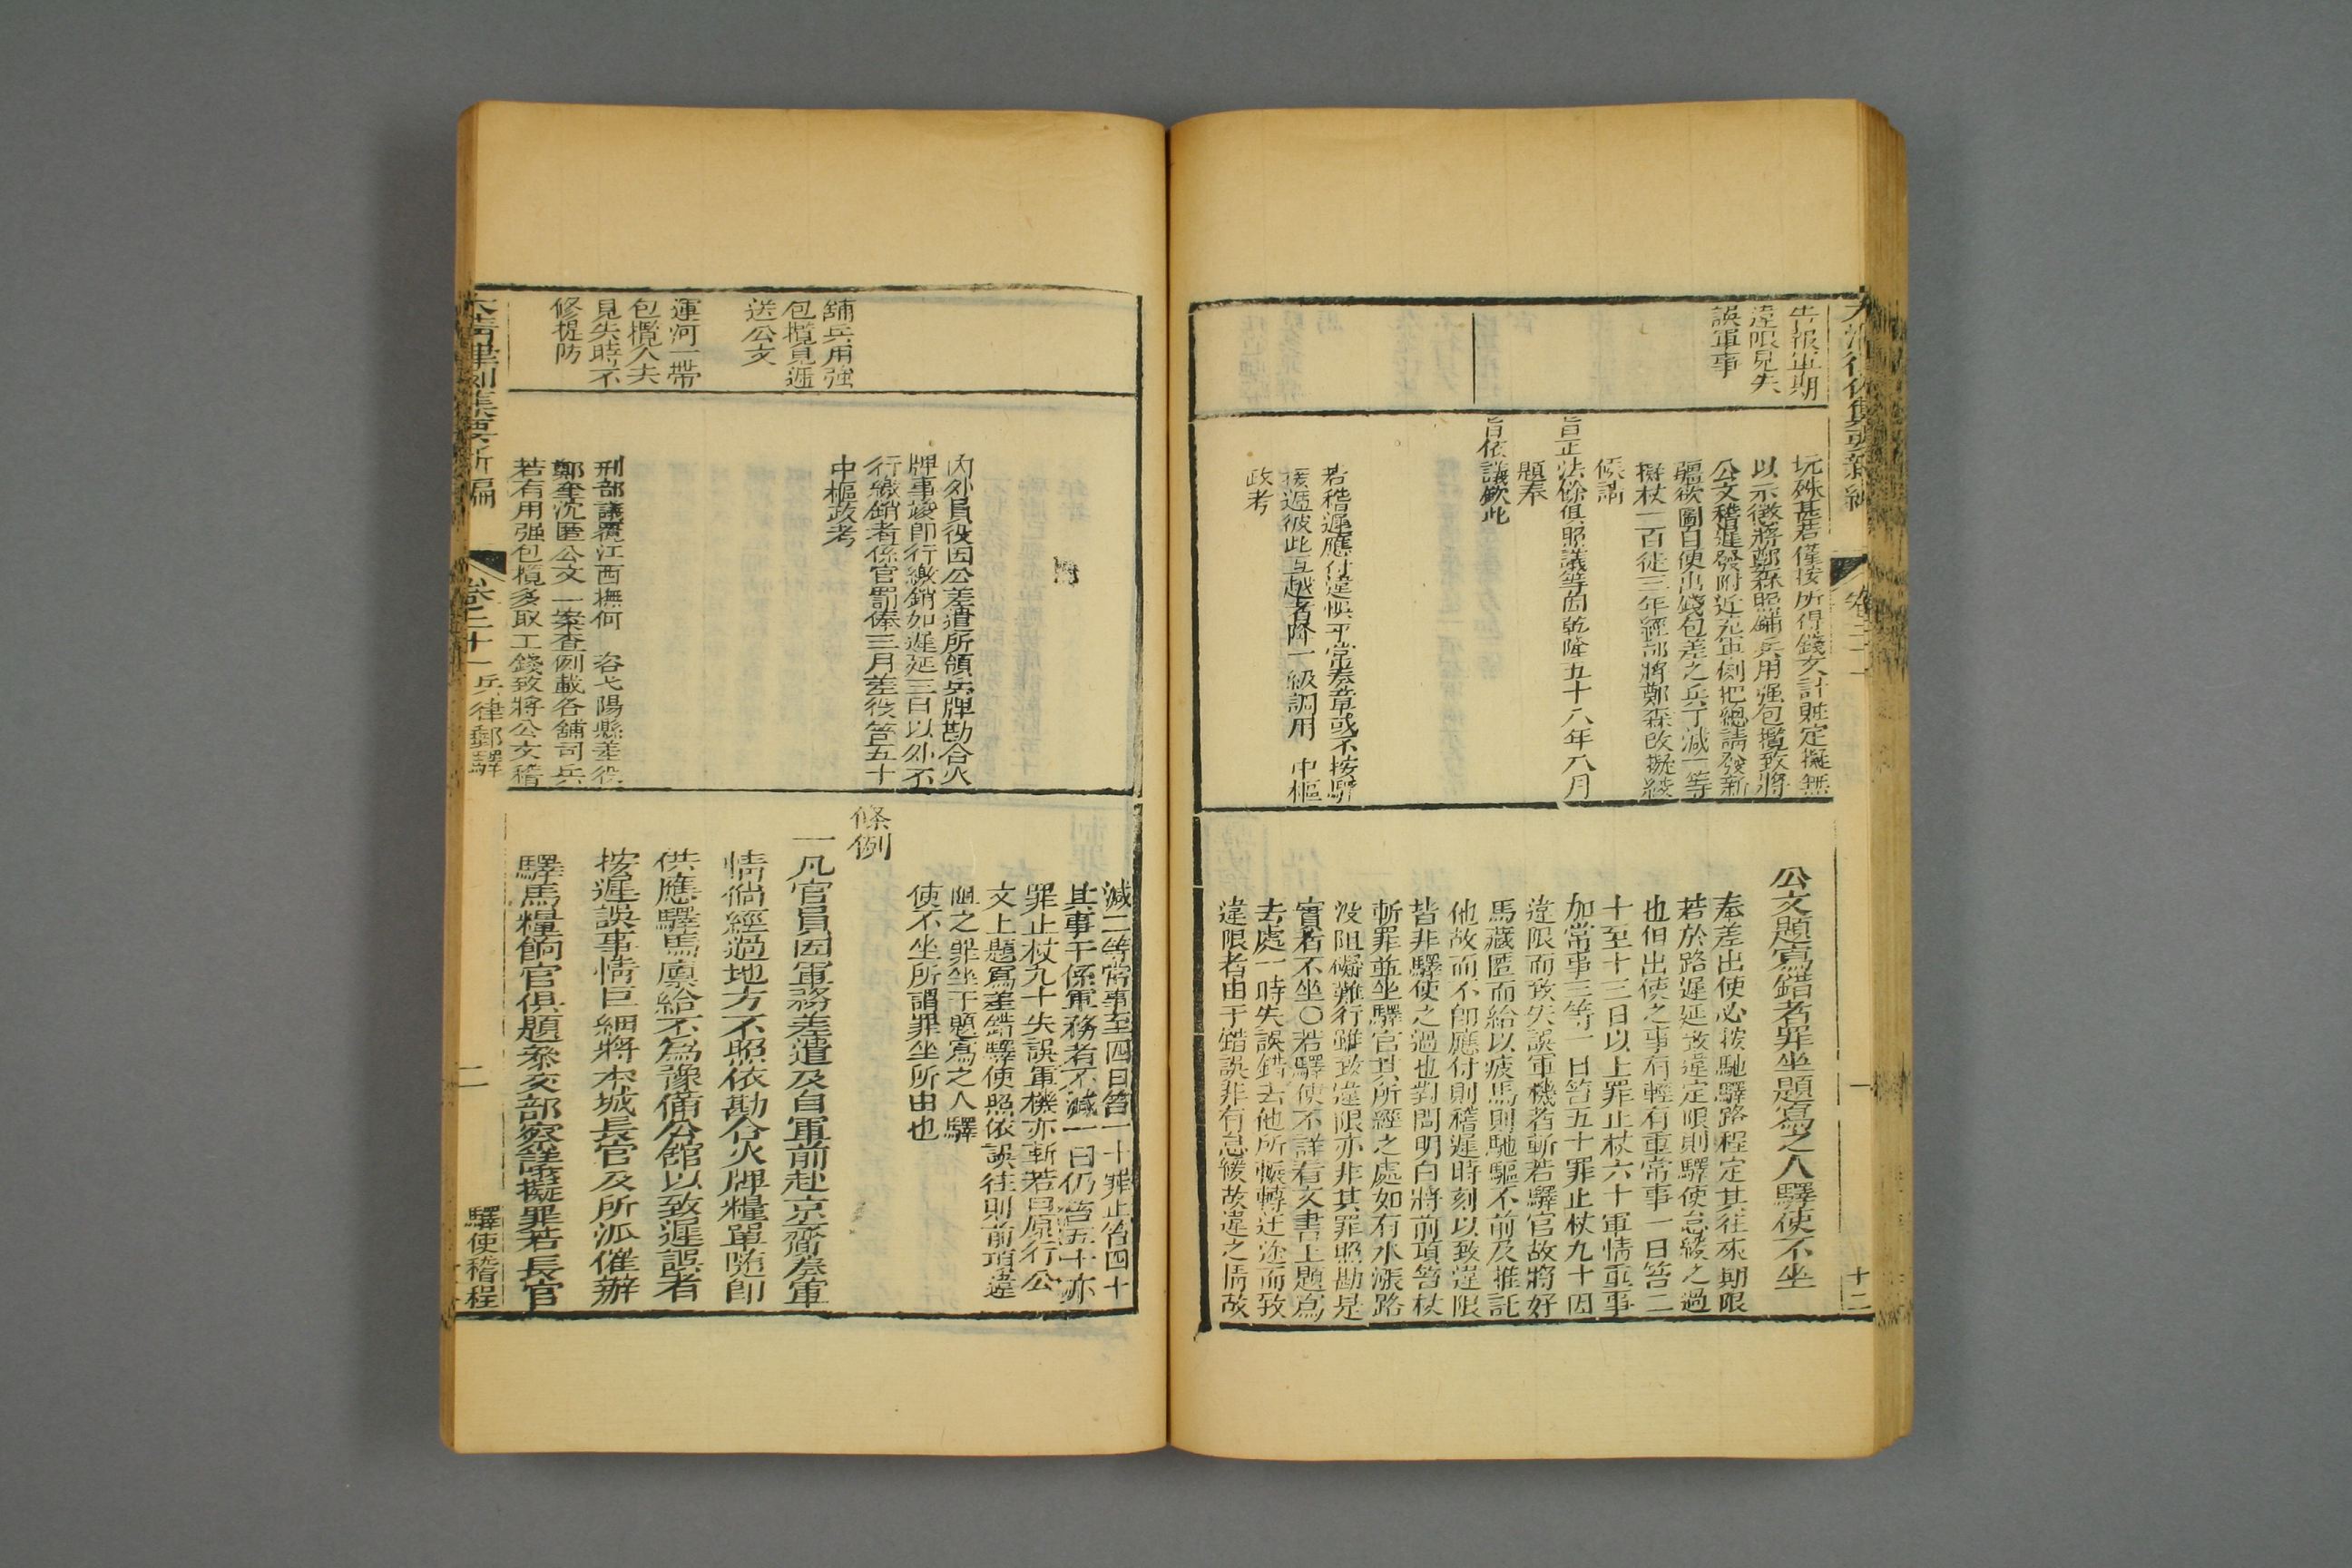 大清律例集要新編
卷二十一
十二
告報軍期
違限見失
誤軍事
玩殊甚若僅按所得錢文計贓定擬無
以示懲將鄭森照鋪兵用强包攬致將
公文稽遲發附近充軍例把總請發新
疆欲圖自便出錢包差之兵丁減一等
擬杖一百徒三年經部將鄭森改擬絞
候請
旨正法餘俱照議等因乾隆五十八年八月
題奉
旨依議欽此
若稽遲應付違悞平常奏章或不按驛
接遞彼此互越者降一級調用 中樞
政考
公文題寫錯者罪坐題寫之人驛使不坐
奉差出使必按馳驛路程定其往來期限
若於路遲延致違定限則驛使怠緩之過
也但出使之事有輕有重常事一日笞二
十至十三日以上罪止杖六十軍情重事
加常事三等一日笞五十罪止杖九十因
違限而致失誤軍機者斬若驛官故將好
馬藏匿而給以疲馬則馳驅不前及推託
他故而不卽應付則稽遲時刻以致違限
皆非驛使之過也對問明白將前項笞杖
斬罪並坐驛官其所經之處如有水漲路
沒阻礙難行雖致違限亦非其罪照勘是
實者不坐○若驛使不詳看文書上題寫
去處一時失誤錯去他所輾轉迂途而致
違限者由于錯誤非有怠緩故違之情故
內外員役因公差遣所領兵牌勘合火
牌事竣卽行繳銷如遲延三日以外不
行繳銷者係官罰俸三月差役笞五十
中樞政考
舖兵用強
包攬見遞
送公文
運河一帶
包攬人夫
見失時不
修堤防
刑部議覆江西撫何 咨弋陽縣差役
鄭奎沈匿公文一案查例載各舖司兵
若有用强包攬多取工錢致將公文稽
減二等常事至四日笞一十罪止笞四十
其事干係軍務者不減一日仍笞五十亦
罪止杖九十失誤軍機亦斬若曰原行公
文上題寫差錯驛使照依誤往則前項違
限之罪坐于題寫之人驛
使不坐所謂罪坐所由也
條例
一凡官員因軍務差遣及自軍前赴京齎奏軍
情倘經過地方不照依勘合火牌糧單隨卽
供應驛馬廩給不爲豫備公館以致遲誤者
按遲誤事情巨細將本城長官及所派催辦
驛馬糧餉官俱題叅交部察議擬罪若長官
大清律例集要新編
卷二十一 兵律郵驛
二
驛使稽程